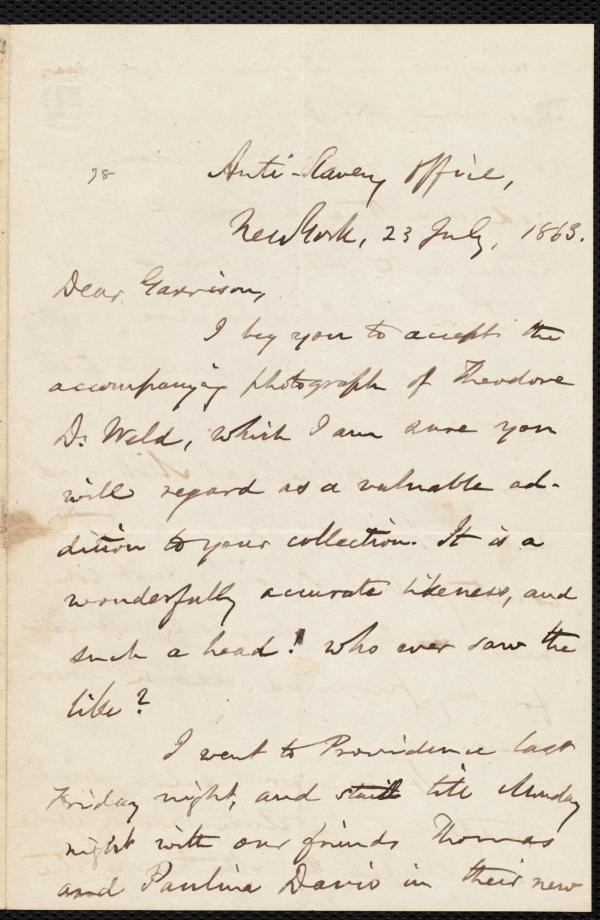 78
Anti-Slavery Office,
New York, 23 July, 1863.
Dear Garrison,
I beg you to accept the
accompanying photograph of Theodore
D. Weld, which I am sure you
will regard as a valuable ad-
dition to your collection. It is a
wonderfully accurate likeness, and
such a head! who ever saw the
like?
I went to Providence last
Friday night, and staid till Monday
night with our friends Thomas
and Paulina Davis in their new